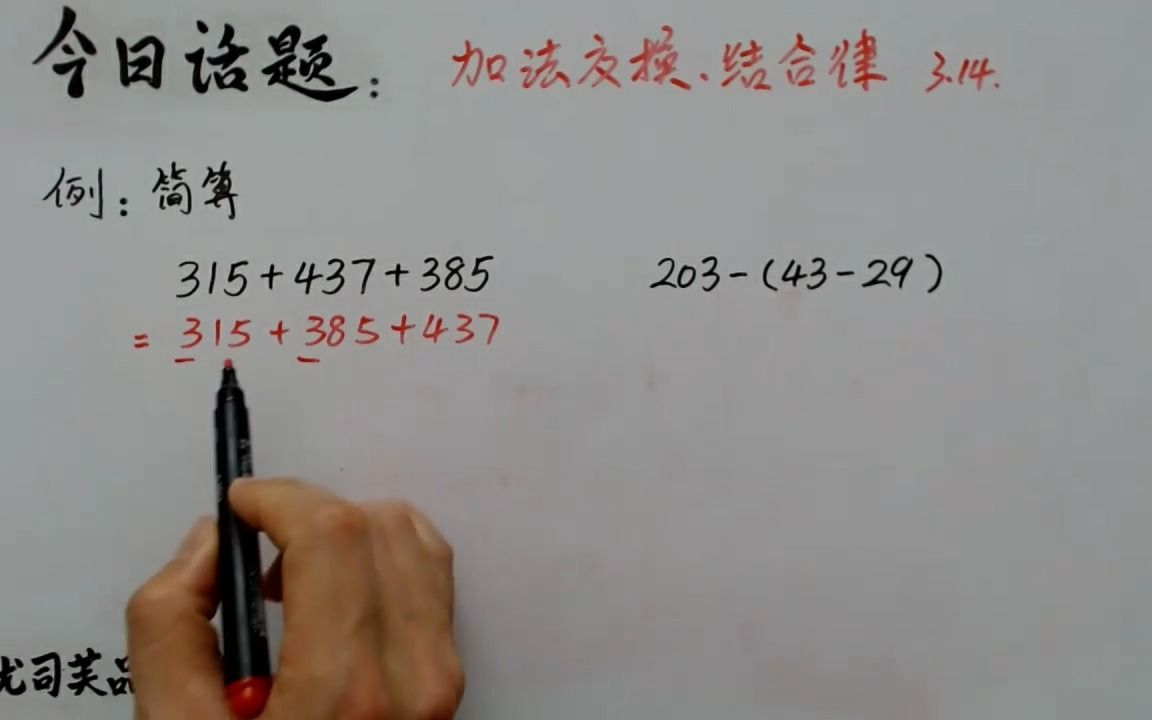 今日话题： 加法交换、结合律 3.14.
例：简算
315+437+385 203-(43-29)
= 315+385+437
优司芙品